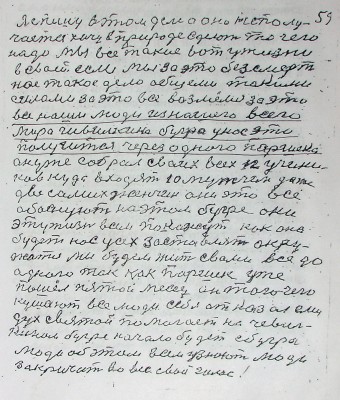 я спишу в этом дело а оно и сполу- 59
чается хочу в природе сдают то чего
надо мы все такие вот у жизни
в своей если мы за это бессмерт
ное такое дело общими такими
силами за это все возмем за это
все наши люди из нашего всего
мира Чивилкина бугра у нас это
получится через одного паршика
он уже собрал своих всех 12 учени-
ков куда входят 10 мужчин даже
две самих женчин они это все
обоснуют на этом бугре они
эту жизнь всем покажут как она
будет нас усех заставлят окру-
жати мы будем жит свами все до
одного так как паршик уже
пошел пятой месец он того чего
кушают все люди себя отказал ему
дух святой помогает на чевил-
кином бугре начало будет с бугра
люди об этом всем узнают люди
закричат во весь свой голос!